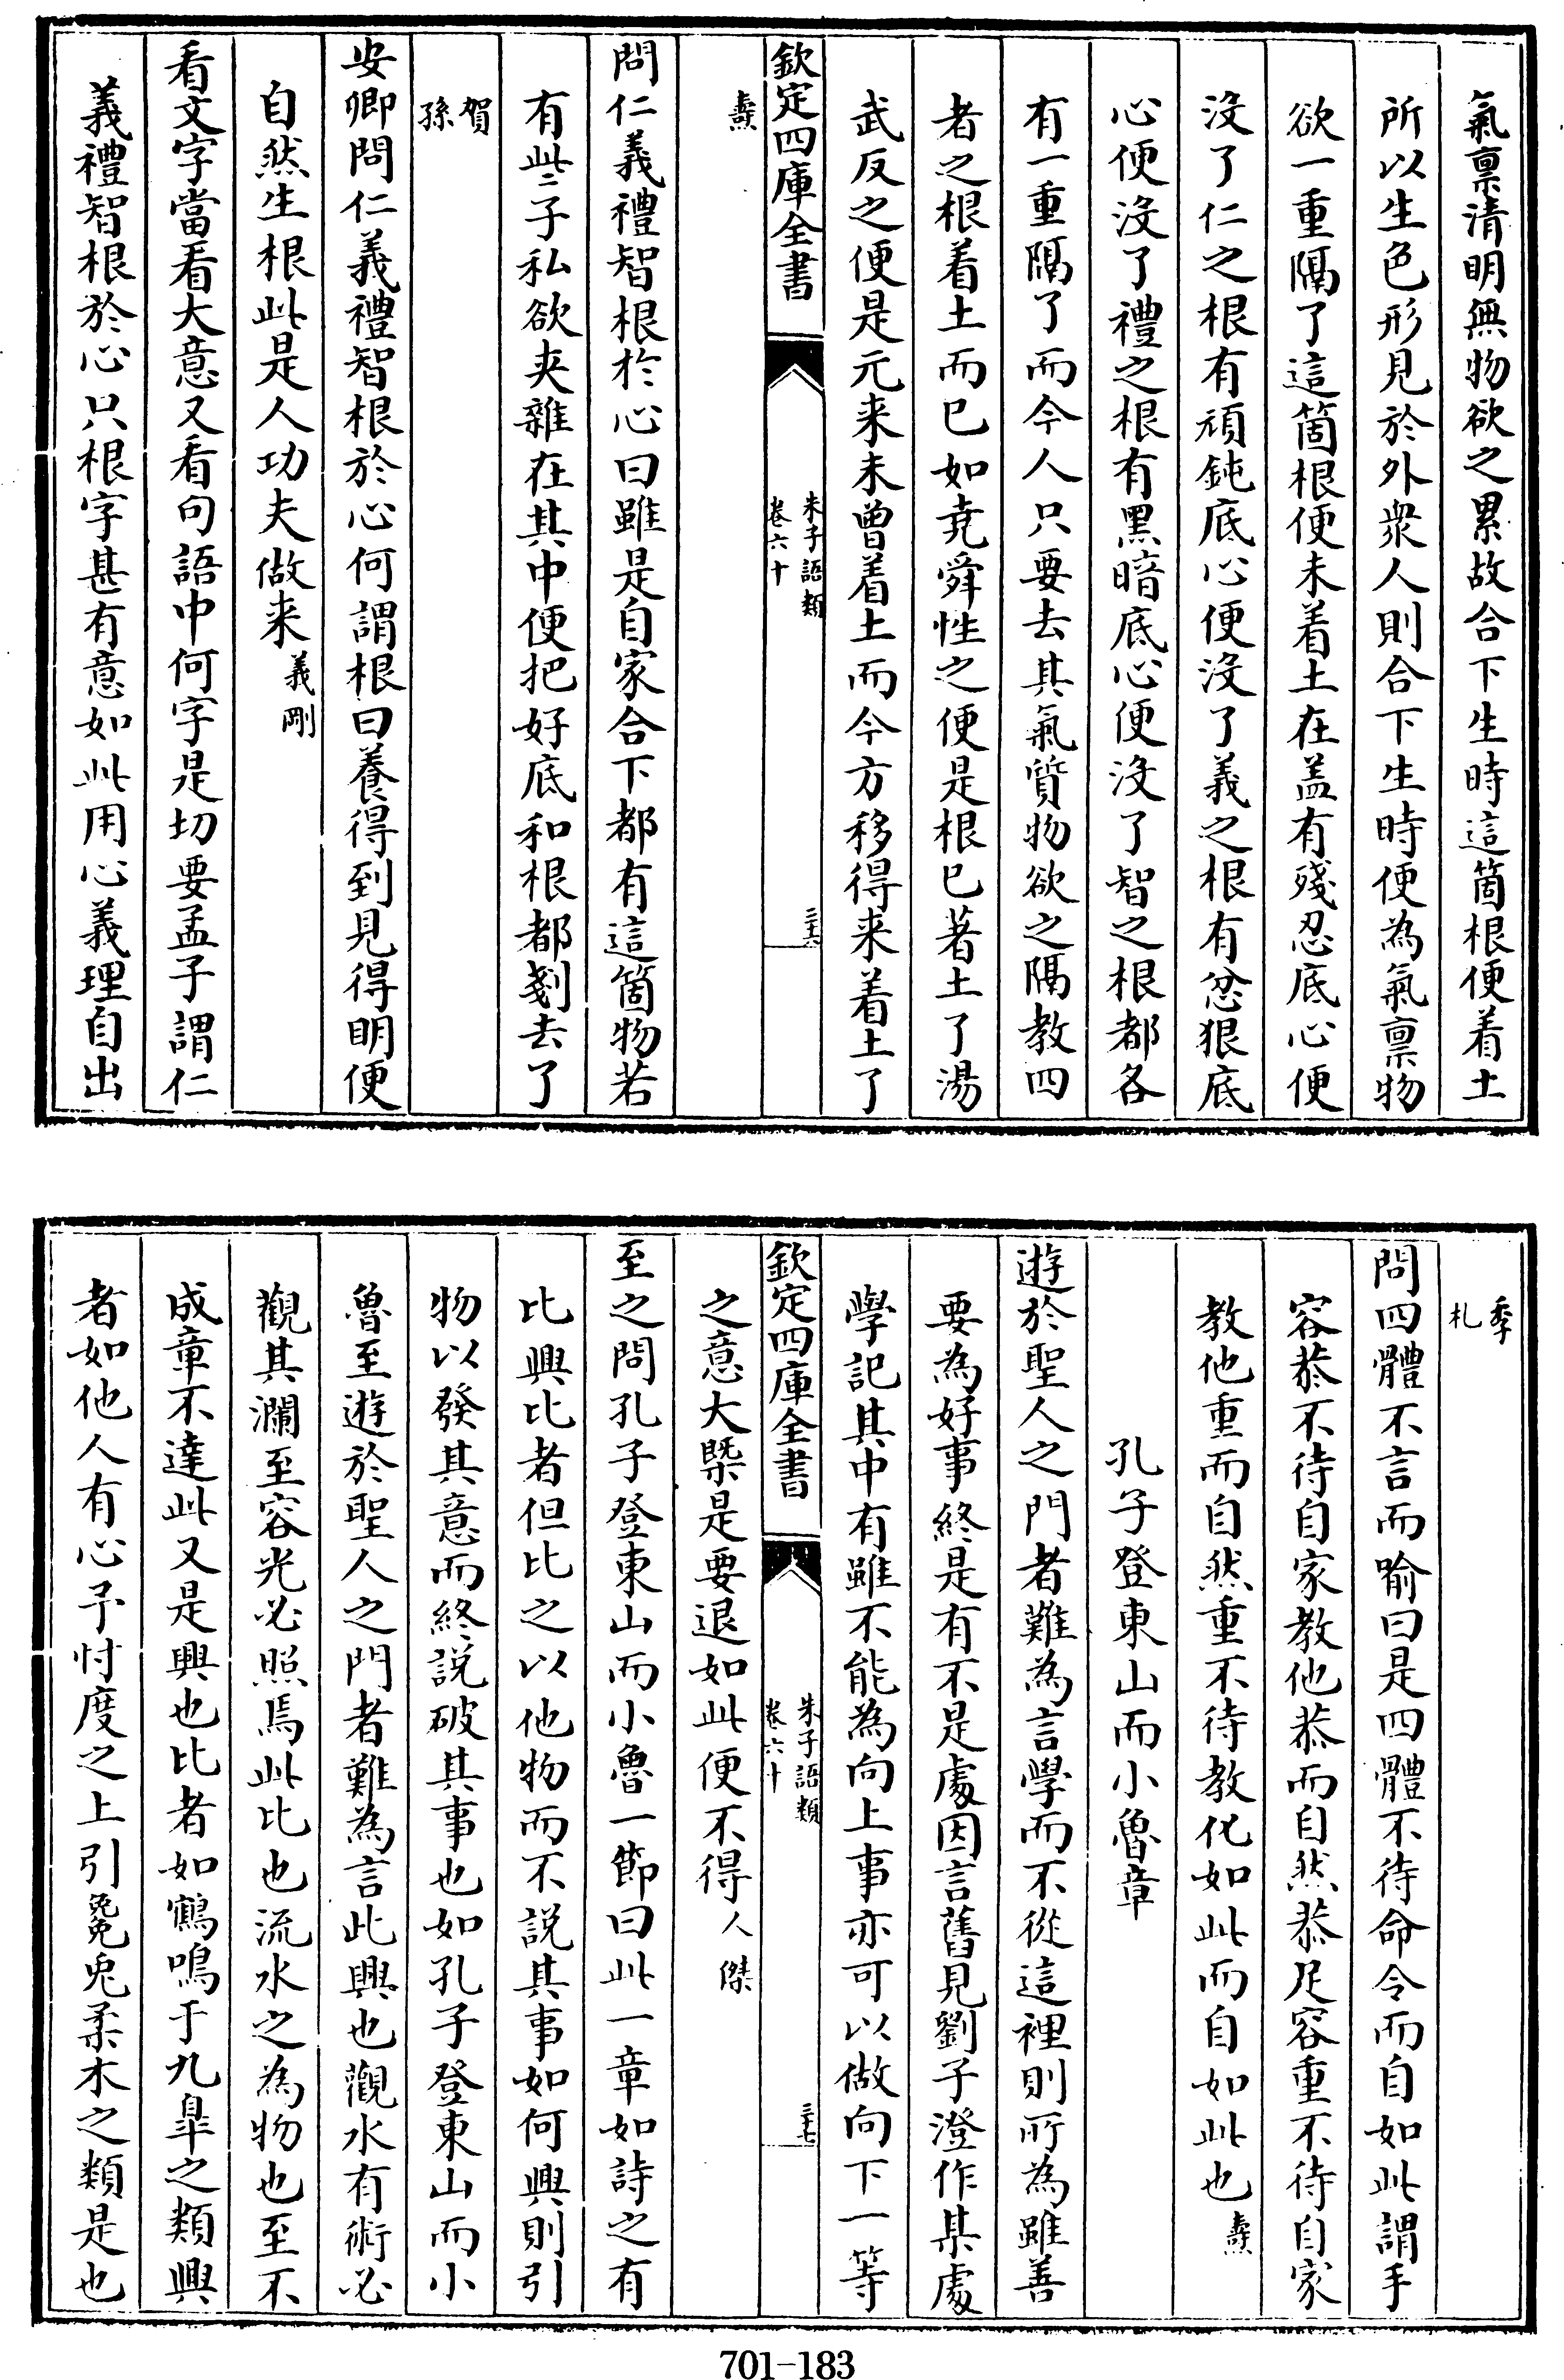 氣禀清明無物欲之累故合下生時這箇根便着土
所以生色形見於外衆人則合下生時便為氣禀物
欲一重隔了這箇根便未着土在盖有殘忍底心便
沒了仁之根有頑鈍底心便沒了義之根有忿狠底
心便沒了禮之根有黑暗底心便沒了智之根都各
有一重隔了而今人只要去其氣質物欲之隔教四
者之根着土而已如堯舜性之便是根已著土了湯
武反之便是元来未曾着土而今方移得来着土了
欽定四庫全書
朱子語類
卷六十
三十六
燾
問仁義禮智根於心曰雖是自家合下都有這箇物若
有些子私欲夾雜在其中便把好底和根都剗去了
賀
孫
安卿問仁義禮智根於心何謂根曰養得到見得明便
自然生根此是人功夫做来義剛
看文字當看大意又看句語中何字是切要孟子謂仁
義禮智根於心只根字甚有意如此用心義理自出
季
札
問四體不言而喻曰是四體不待命令而自如此謂手
容恭不待自家教他恭而自然恭足容重不待自家
教他重而自然重不待教化如此而自如此也燾
孔子登東山而小魯章
遊於聖人之門者難為言學而不從這裡則所為雖善
要為好事終是有不是處因言舊見劉子澄作某處
學記其中有雖不能為向上事亦可以做向下一等
欽定四庫全書
朱子語類
卷六十
三十七
之意大槩是要退如此便不得人傑
至之問孔子登東山而小魯一節曰此一章如詩之有
比興比者但比之以他物而不說其事如何興則引
物以發其意而終說破其事也如孔子登東山而小
魯至遊於聖人之門者難為言此興也觀水有術必
觀其瀾至容光必照焉此比也流水之為物也至不
成章不達此又是興也比者如鶴鳴于九臯之類興
者如他人有心予忖度之上引毚兎柔木之類是也
701-183